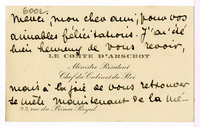 6002.
Merci, mon cher ami, pour vos
aimables félicitations. J'ai été
bien heureux de vous revoir,
LE COMTE D'ARSCHOT
Ministre Résident
Chef du Cabinet du Roi
mais à la joie de vous retrouver
se mêle maintenant de la
23, rue du Prince Royal